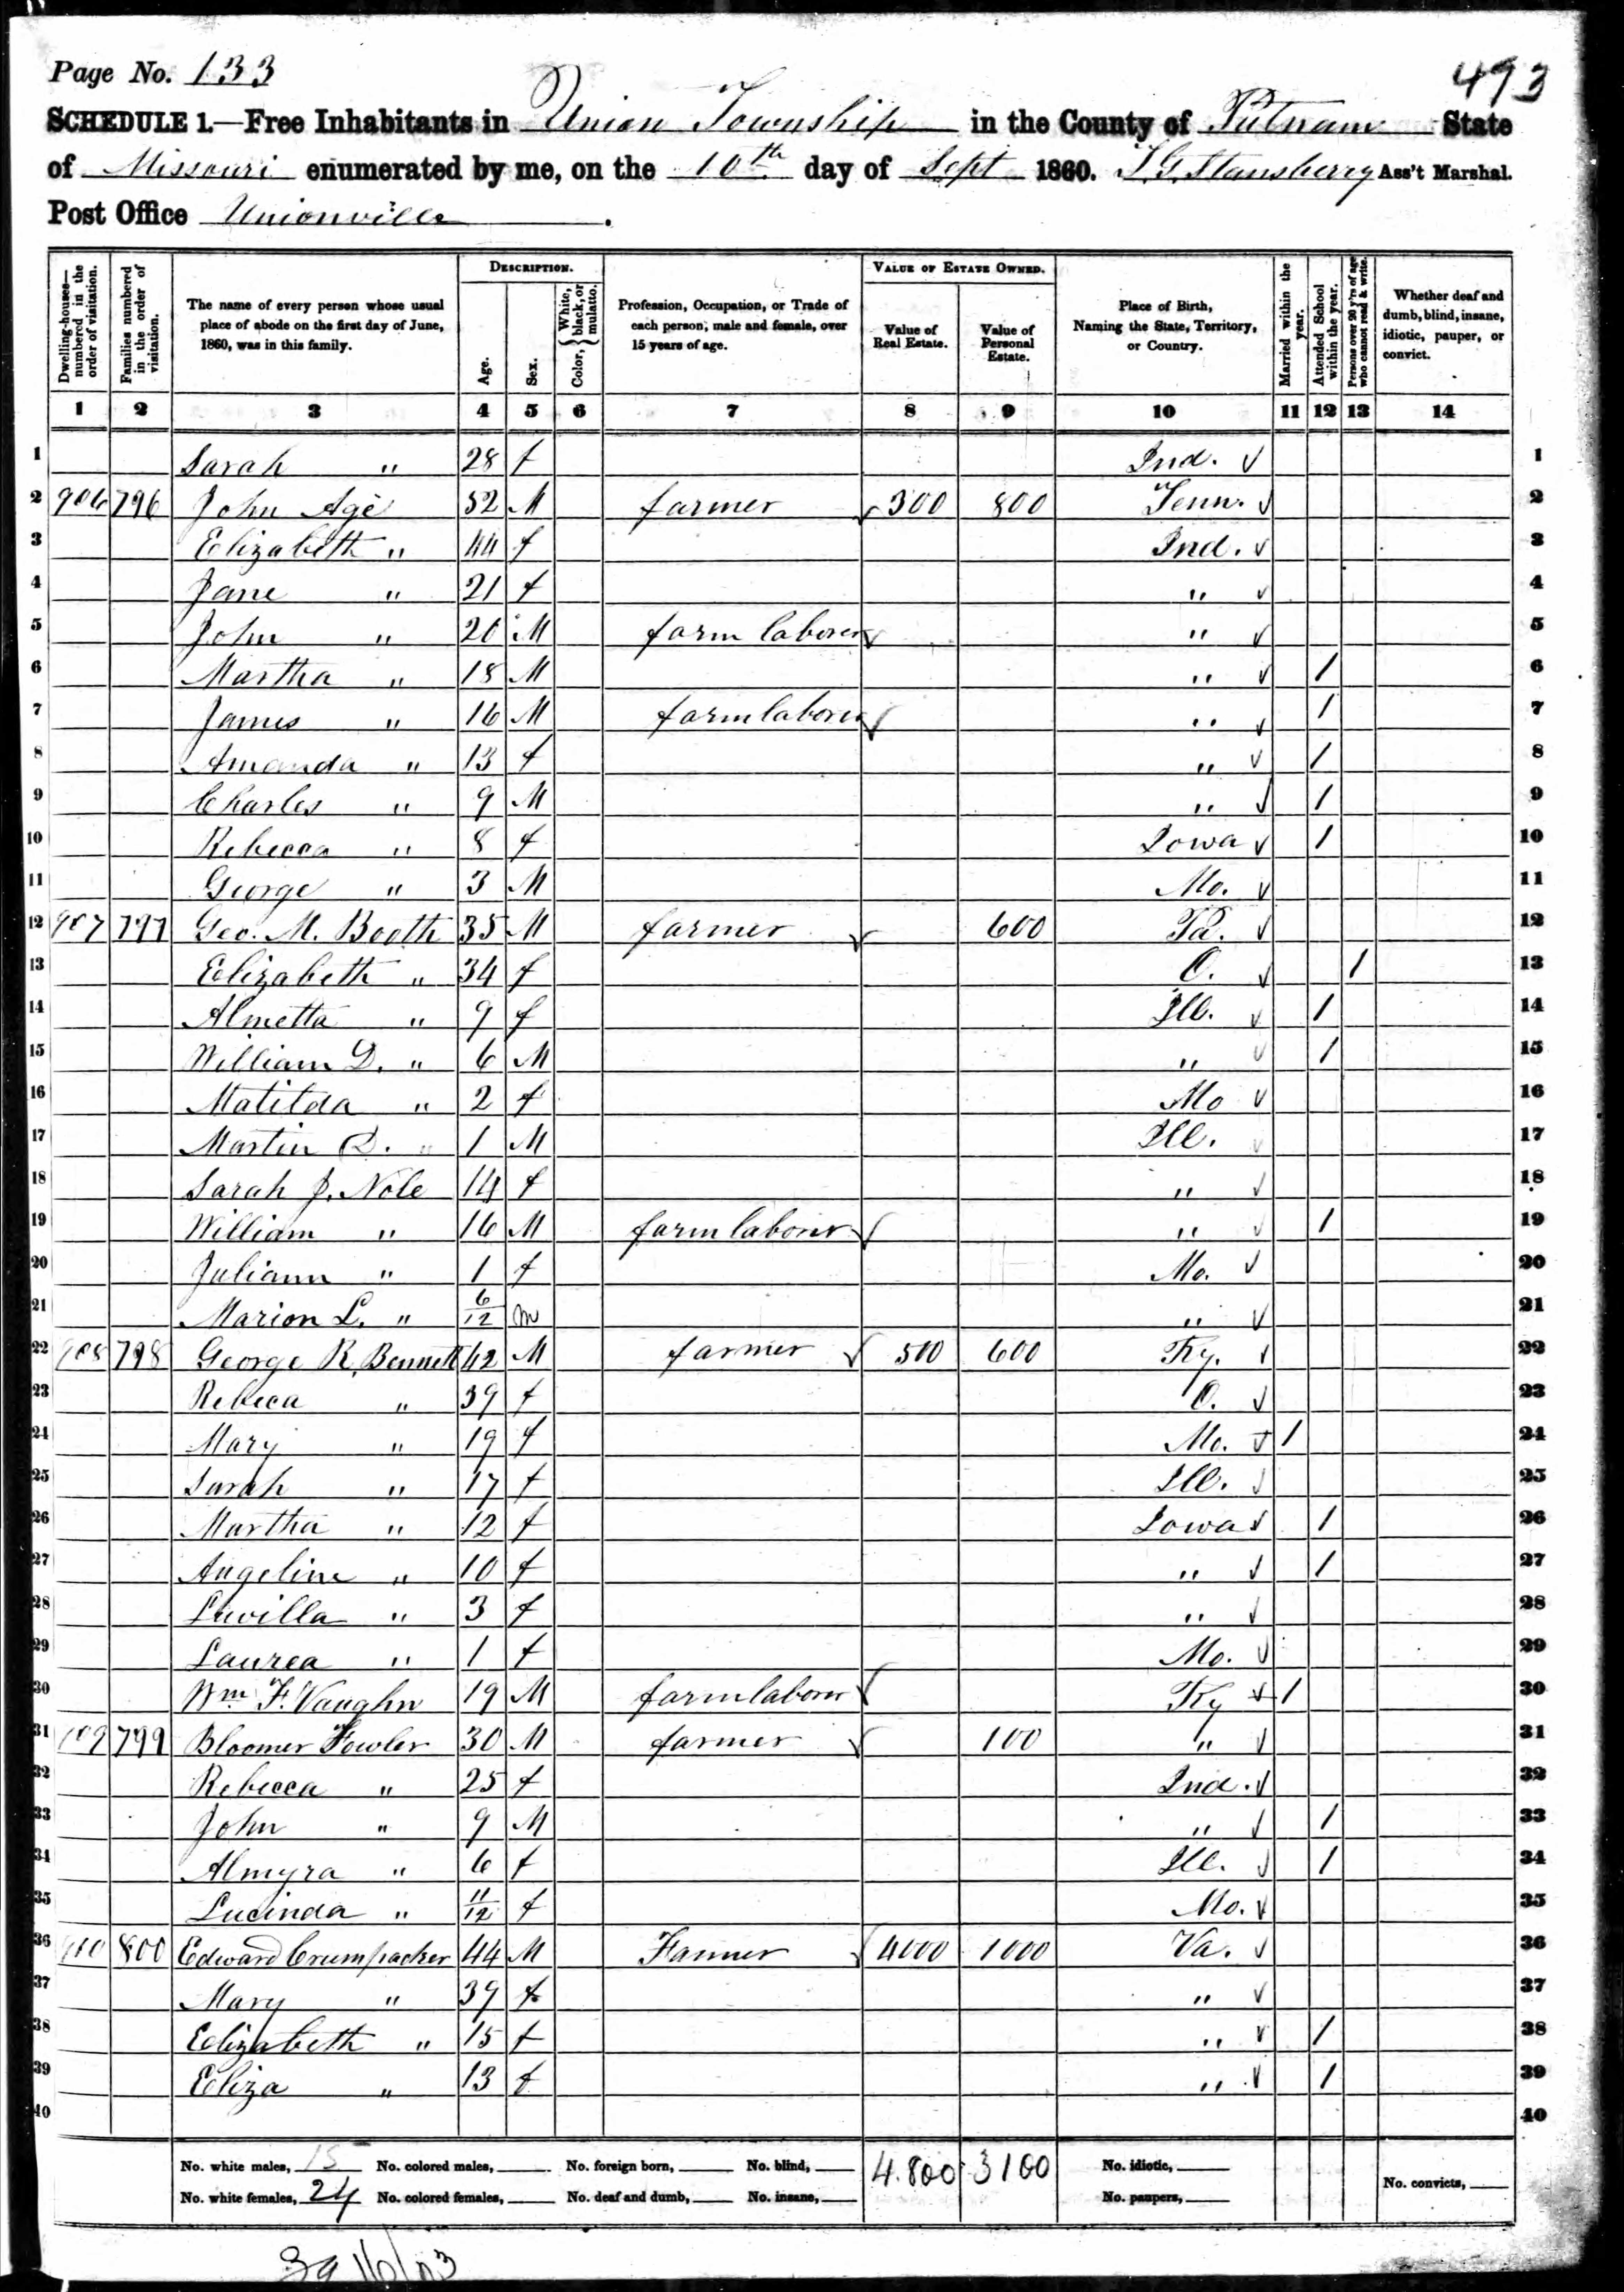 Page No. 133
493
SCHEDULE 1.—Free Inhabitants in Union Township in the County of Putnam State
of Missouri enumerated by me, on the 10th day of Sept 1860. T.G. Stansberry Ass't Marshal.
Post Office Unionville.
Dwelling-houses—numbered in the order of visitation.
Families numbered in the order of visitation.
The name of every person whose usual place of abode on the first day of June, 1860, was in this family.
DESCRIPTION.
Age.
Sex.
Color, {White, black, or mulatto.
Profession, Occupation, or Trade of each person, male and female, over 15 years of age.
VALUE OF ESTATE OWNED.
Value of Real Estate.
Value of Personal Estate.
Place of Birth, Naming the State, Territory, or Country.
Married within the year.
Attended School within the year.
Persons over 20 y'rs of age who cannot read & write.
Whether deaf and dumb, blind, insane, idiotic, pauper, or convict.
1 2 3 4 5 6 7 8 9 10 11 12 13 14
1 Sarah " 28 f Ind. ✓ 1
2 906 796 John Age 52 M farmer ✓ 300 800 Tenn. ✓ 2
3 Elizabeth " 44 f Ind. ✓ 3
4 Jane " 21 f " ✓ 4
5 John " 20 M farm laborer ✓ " ✓ 5
6 Martha " 18 M " ✓ 1 6
7 James " 16 M farm laborer ✓ " ✓ 1 7
8 Amanda " 13 f " ✓ 1 8
9 Charles " 9 M " ✓ 1 9
10 Rebecca " 8 f Iowa ✓ 1 10
11 George " 3 M Mo. ✓ 11
12 907 797 Geo. M. Booth 35 M farmer ✓ 600 Pa. ✓ 12
13 Elizabeth " 34 f O. ✓ 1 13
14 Almetta " 9 f Ill. ✓ 1 14
15 William D. " 6 M " ✓ 1 15
16 Matilda " 2 f Mo ✓ 16
17 Martin D. " 1 M Ill. ✓ 17
18 Sarah J. Nole 14 f " ✓ 18
19 William " 16 M farm laborer ✓ " ✓ 1 19
20 Juliann " 1 f Mo. ✓ 20
21 Marion L. " 6/12 m " ✓ 21
22 908 798 George R. Bennett 42 M farmer ✓ 500 600 Ky. ✓ 22
23 Rebeca " 39 f O. ✓ 23
24 Mary " 19 f Mo. ✓ 1 24
25 Sarah " 17 f Ill. ✓ 25
26 Martha " 12 f Iowa ✓ 1 26
27 Angeline " 10 f " ✓ 1 27
28 Luvilla " 3 f " ✓ 28
29 Laurea " 1 f Mo. ✓ 29
30 Wm F. Vaughn 19 M farm laborer ✓ Ky ✓ 1 30
31 909 799 Bloomer Fowler 30 M farmer ✓ 100 " ✓ 31
32 Rebecca " 25 f Ind. ✓ 32
33 John " 9 M " ✓ 1 33
34 Almyra " 6 f Ill. ✓ 1 34
35 Lucinda " 11/12 f Mo. ✓ 35
36 910 800 Edward Crumpacker 44 M Farmer ✓ 4000 1000 Va. ✓ 36
37 Mary " 39 f " ✓ 37
38 Elizabeth " 15 f " ✓ 1 38
39 Eliza " 13 f " ✓ 1 39
40 40
No. white males, 15 No. colored males, No. foreign born, No. blind, 4.800 3100 No. idiotic,
No. white females, 24 No. colored females, No. deaf and dumb, No. insane, No. paupers, No. convicts,